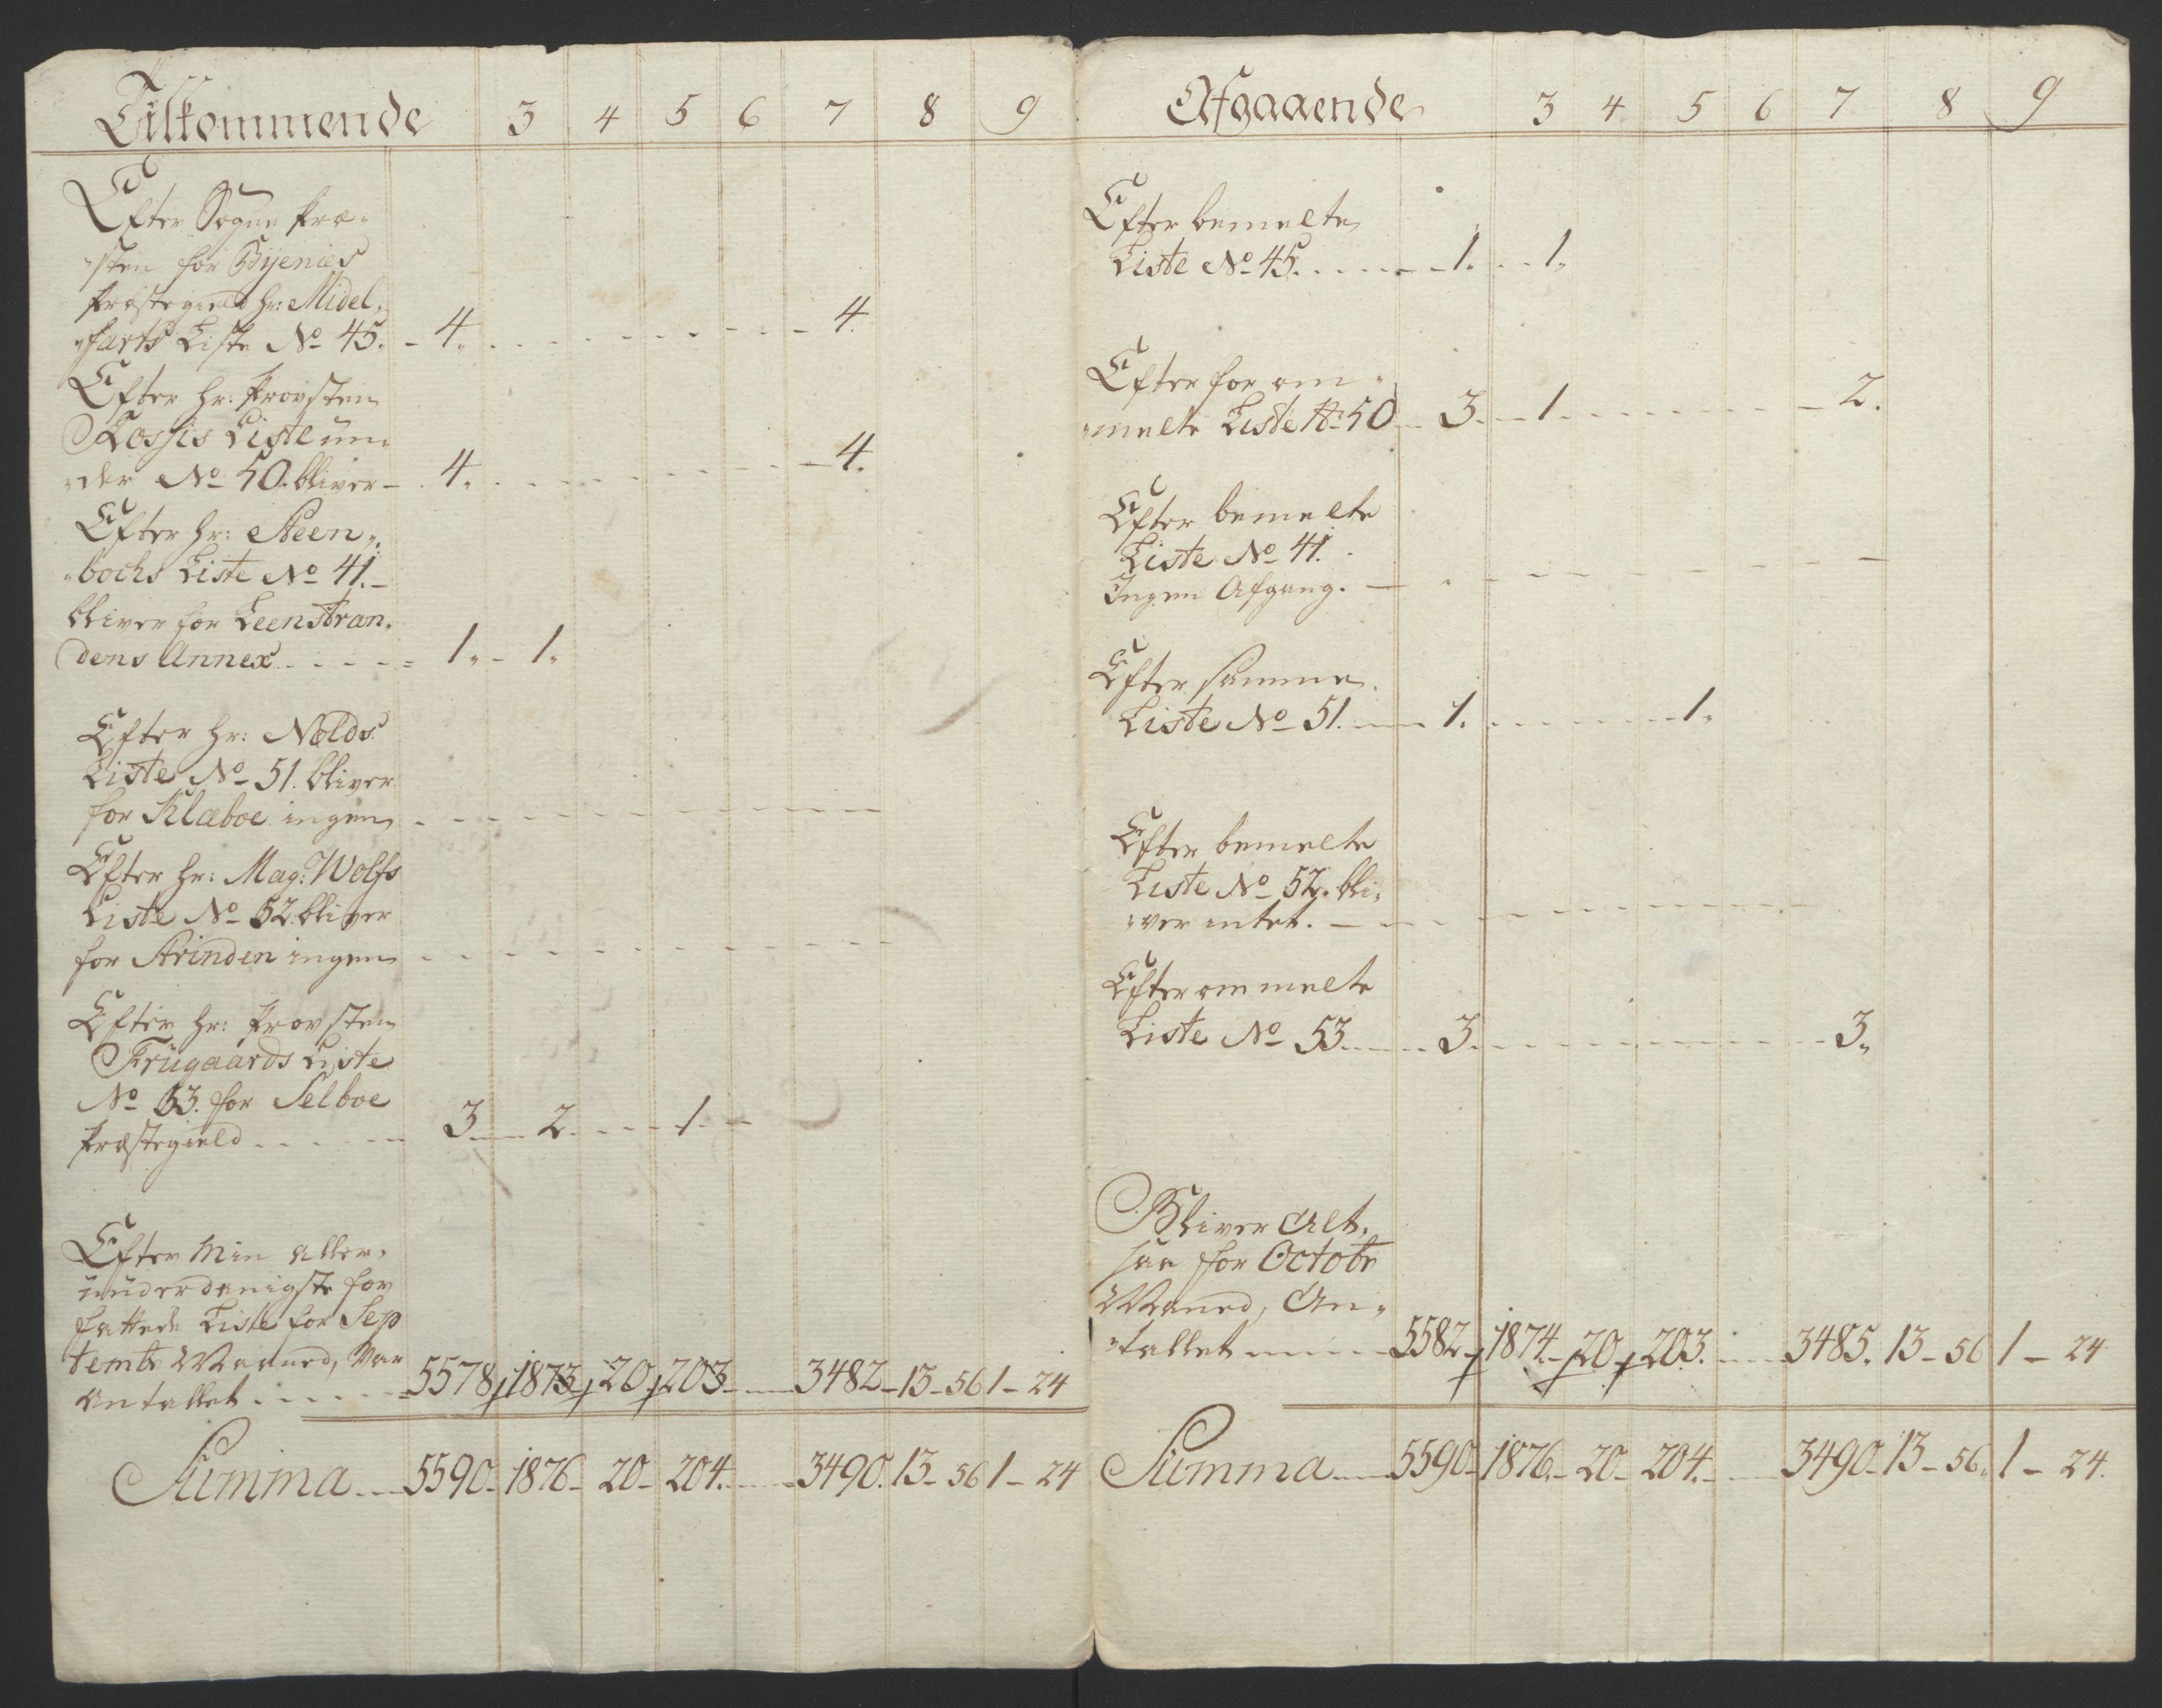 Tilkommende 3 4 5 6 7 8 9
Efter Sogne Præ-
sten for Byenies
Præstegield hr: Midel-
farts Liste No 45. - 4. - - - - - - 4.
Efter hr: Provsten
Rossis Liste un-
der No 50. bliver - 4. - - - - - - 4.
Efter hr: Steen-
bochs Liste No 41. -
bliver for Leenstran-
dens Annex. - - - - 1. - 1.
Efter hr: Nolds
Liste No 51. bliver
for Klæboe ingen - - - - - -
Efter hr: Mag: Wolfs
Liste No 52. bliver
for Strinden ingen - - - - - -
Efter hr: Provsten
Frügaards Liste
No 53. for Selboe
Præstegield - - - - 3. - 2. - - - 1. -
Efter Min aller-
ünderdanigste for
fattede Liste for Sep
tembr Maaned, var
Antallet. - - - - 5578. 1873. 20. 203. - 3482 - 13 - 56 1 - 24
Summa - 5590 - 1876 - 20 - 204. - 3490. 13 - 56 1 - 24
Afgaaende 3 4 5 6 7 8 9
Efter bemelte
Liste No 45. - - - - 1. - - 1.
Efter for om-
melte Liste No 50 - 3. - 1. - - - - - 2.
Efter bemelte
Liste No 41.
Ingen Afgang. - - - - - -
Efter samme
Liste No 51. - 1. - - - - - 1.
Efter bemelte
Liste No 52. bli-
ver intet. - - - - - -
Efter ommelte
Liste No 53. - - 3. - - - - - - 3.
Bliver Alt-
saa for Octobr
Maaned, An-
tallet - - - 5582 - 1874. - 20 - 203. - 3485. 13 - 56 1 - 24
Summa - 5590 - 1876. - 20 - 204. - 3490. 13 - 56. 1 - 24.